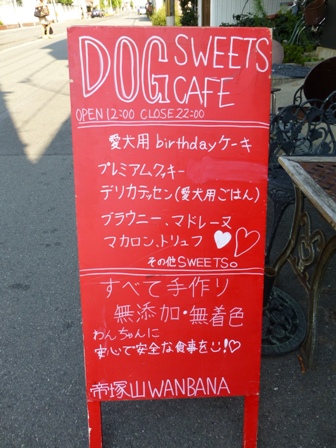 DOG SWEETS
CAFE
OPEN 12:00 CLOSE 22:00
愛犬用birthdayケーキ
プレミアムクッキー
デリカテッセン(愛犬用ごはん)
ブラウニー、マドレーヌ
マカロン、トリュフ
その他SWEETS。
すべて手作り
無添加・無着色
わんちゃんに
安心で安全な食事を!
帝塚山WANBANA